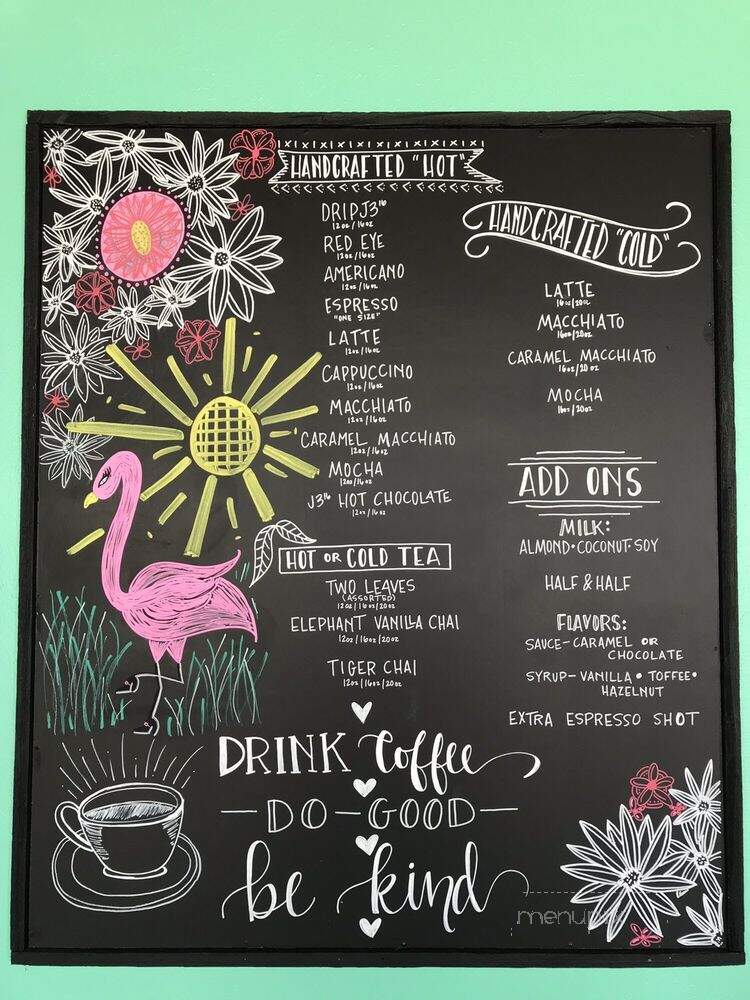 HANDCRAFTED "HOT"
DRIP J3¹⁶
12 oz / 16 oz
RED EYE
12 oz / 16 oz
AMERICANO
12 oz / 16 oz
ESPRESSO
"ONE SIZE"
LATTE
12 oz / 16 oz
CAPPUCCINO
12 oz / 16 oz
MACCHIATO
12 oz / 16 oz
CARAMEL MACCHIATO
12 oz / 16 oz
MOCHA
12 oz / 16 oz
J3¹⁶ HOT CHOCOLATE
12 oz / 16 oz
HOT OR COLD TEA
TWO LEAVES
(ASSORTED)
12 oz / 16 oz / 20 oz
ELEPHANT VANILLA CHAI
12 oz / 16 oz / 20 oz
TIGER CHAI
12 oz / 16 oz / 20 oz
HANDCRAFTED "COLD"
LATTE
16 oz / 20 oz
MACCHIATO
16 oz / 20 oz
CARAMEL MACCHIATO
16 oz / 20 oz
MOCHA
16 oz / 20 oz
ADD ONS
MILK:
ALMOND • COCONUT • SOY
HALF & HALF
FLAVORS:
SAUCE - CARAMEL OR
CHOCOLATE
SYRUP - VANILLA • TOFFEE •
HAZELNUT
EXTRA ESPRESSO SHOT
DRINK Coffee
— DO — GOOD —
be kind